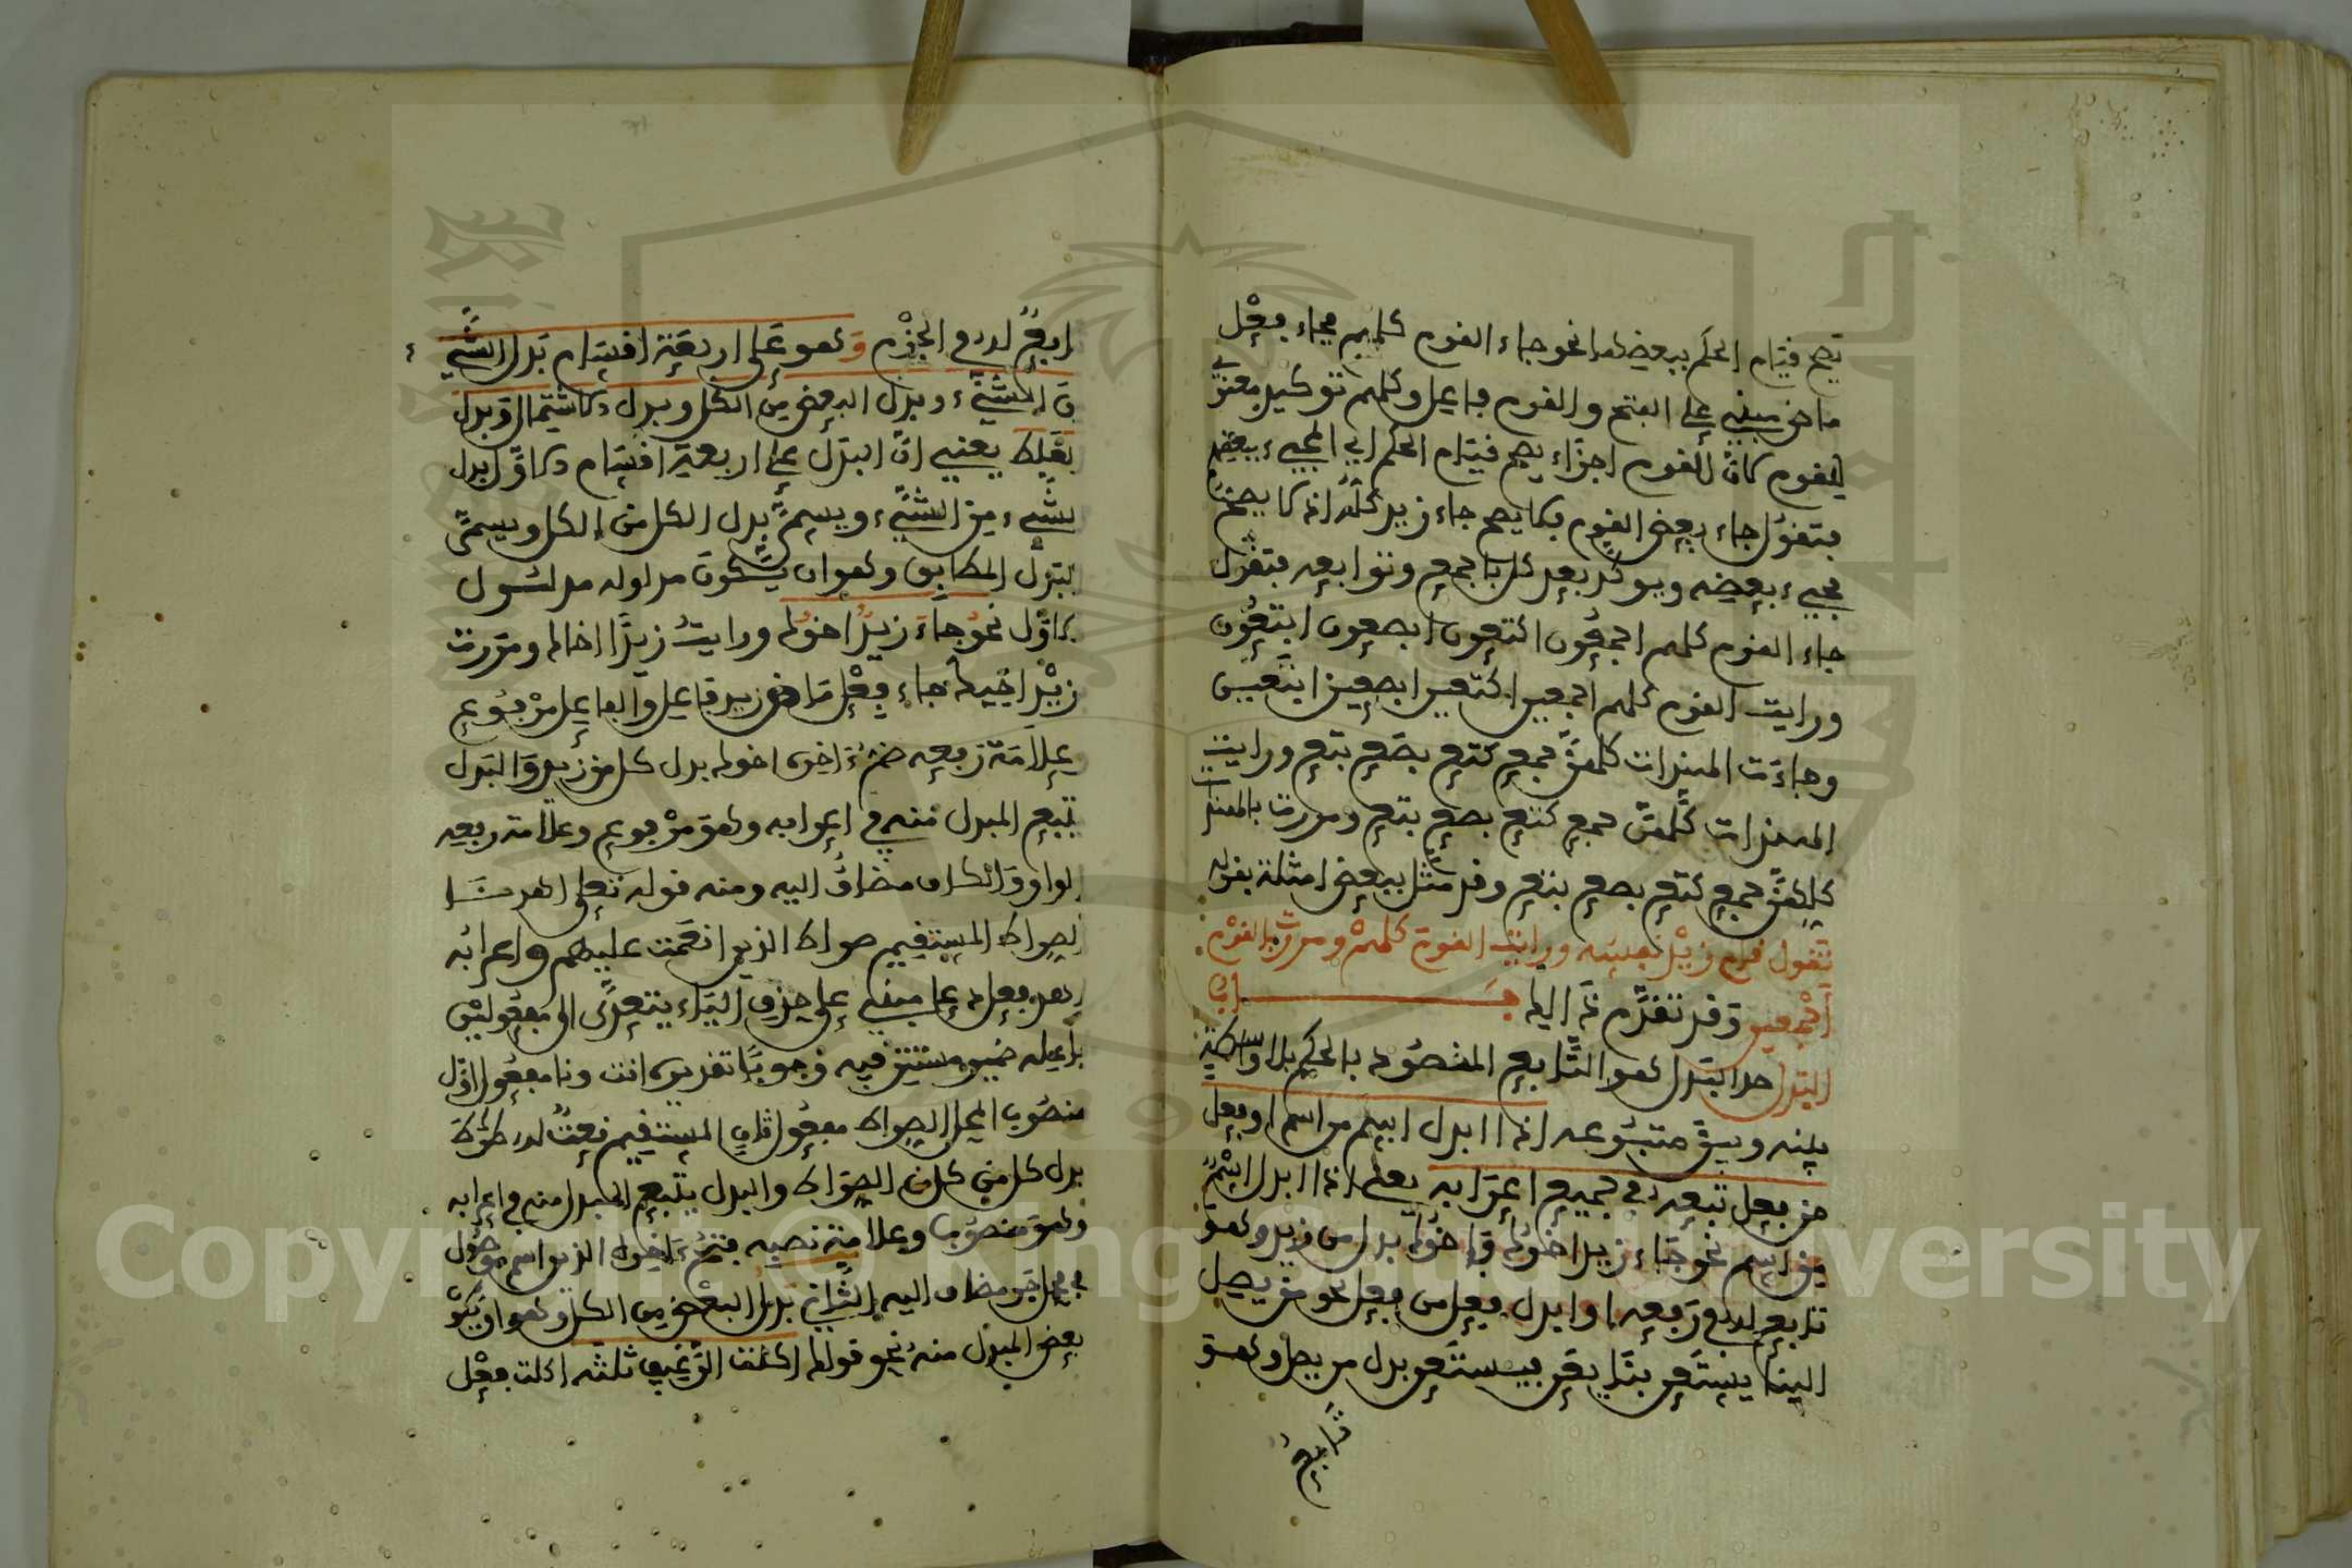 يصح قيام الحكم ببعضها نحو جاء القوم كلهم فجاء فعل
ماض مبني على الفتح والقوم فاعل وكلهم توكيد معنوي
للقوم لأن القوم أجزاء يصح قيام الحكم أي المجيء ببعضهم
فتقول جاء بعض القوم فلا يصح جاء زيد كله إذ لا يصح
مجيء بعضه ويوكد بعد كل بأجمع وتوابعه فتقول
جاء القوم كلهم أجمعون أكتعون أبصعون أبتعون
ورأيت القوم كلهم أجمعين أكتعين أبصعين أبتعين
وجاءت الهندات كلهن جمع كتع بصع بتع ورأيت
الهندات كلهن جمع كتع بصع بتع ومررت بالهندات
كلهن جمع كتع بصع بتع وقد مثل ببعض أمثلة بقوله
تقول قام زيد نفسه ورأيت القوم كلهم ومررت بالقوم
أجمعين وقد تقدم ذالك بـــاب
البدل حد البدل هو التابع المقصود بالحكم بلا واسطة
بينه وبين متبوعه إذا أبدل اسم من اسم أو فعل
من فعل تبعه في جميع إعرابه يعني إذا أبدل اسم
من اسم نحو جاء زيد أخوك فأخوك بدل من زيد وهو
تابع له في رفعه أو أبدل فعل من فعل نحو من يصل
إلينا يستعن بنا يعن فيستعن بدل من يصل وهو
تابع
تابع له في الجزم وهو على أربعة أقسام بدل الشيء
من الشيء وبدل البعض من الكل وبدل الاشتمال وبدل
الغلط يعني أن البدل على أربعة أقسام الأول بدل
الشيء من الشيء ويسمى بدل الكل من الكل ويسمى
البدل المطابق وهو أن يكون مدلوله مدلول
الأول نحو جاء زيد أخوك ورأيت زيدا أخاك ومررت
بزيد أخيك جاء فعل ماض زيد فاعل والفاعل مرفوع
وعلامة رفعه ضم آخره أخوك بدل كل من زيد والبدل
يتبع المبدل منه في إعرابه وهو مرفوع وعلامة رفعه
الواو والكاف مضاف إليه ومنه قوله تعلى اهدنا
الصراط المستقيم صراط الذين أنعمت عليهم وإعرابه
اهد فعل دعا مبني على حذف الياء يتعدى إلى مفعولين
فاعله ضمير مستتر فيه وجوبا تقديره أنت ونا مفعول أول
منصوب المحل الصراط مفعول ثان المستقيم نعت له صراط
بدل كل من كل من الصراط والبدل يتبع المبدل منه في إعرابه
وهو منصوب وعلامة نصبه فتح آخره الذين اسم موصول
في محل جر مضاف إليه الثاني بدل البعض من الكل وهو أن يكون
بعض المبدل منه نحو قولك أكلت الرغيف ثلثه أكلت فعل
Copyright © King Saud University